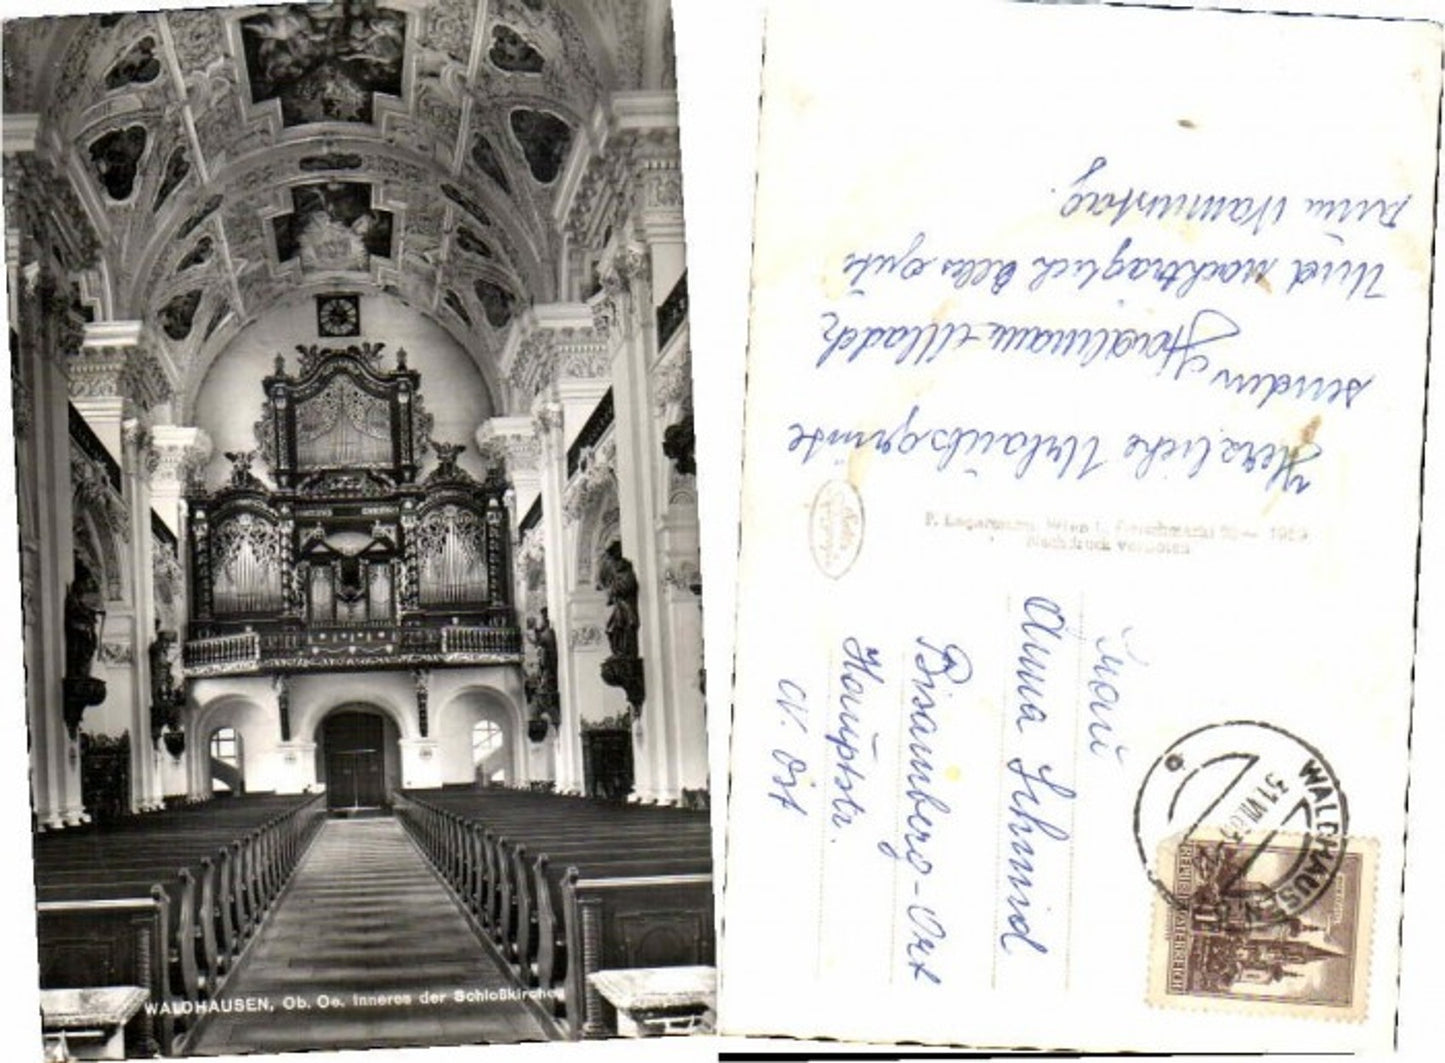 WALDHAUSEN, Ob. Oe. Inneres der Schloßkirche
Herzliche Urlaubsgrüße
senden
Und nachträglich Alles Gute
zum Namenstag.
P. Ledermann, Wien I, Fleischmarkt 20 — 1959
Nachdruck verboten
Echte
Photographie
Frau
Anna Schmid
Bisamberg-Ort
Hauptstr.
N. Öst
WALDHAUSEN
31.VII.63
REPUBLIK ÖSTERREICH